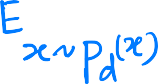 E x~p_d(x)